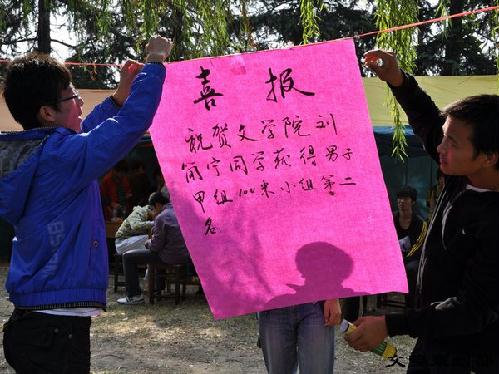 喜报
祝贺文学院刘
简宁同学获得男子
甲组100米小组第二
名